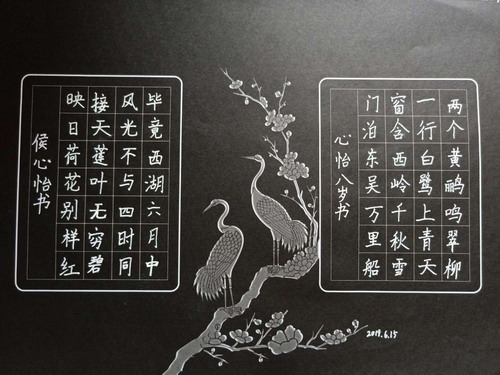 两个黄鹂鸣翠柳
一行白鹭上青天
窗含西岭千秋雪
门泊东吴万里船
心怡八岁书
毕竟西湖六月中
风光不与四时同
接天蓮叶无穷碧
映日荷花别样红
侯心怡书
2019.6.15